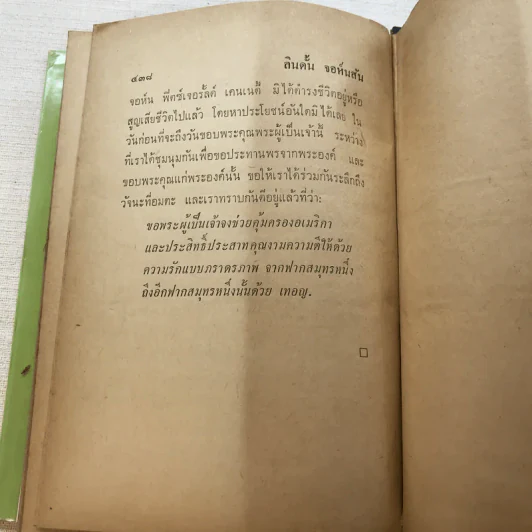 ๔๓๘
ลินดั้น จอห์นสัน
จอห์น ฟิตซ์เจอรั้ลด์ เคนเนดี้ มิได้ดำรงชีวิตอยู่หรือ
สูญเสียชีวิตไปแล้ว โดยหาประโยชน์อันใดมิได้เลย ใน
วันก่อนที่จะถึงวันขอบพระคุณพระผู้เป็นเจ้านี้ ระหว่าง
ที่เราได้ชุมนุมกันเพื่อขอประทานพรจากพระองค์ และ
ขอบพระคุณแก่พระองค์นั้น ขอให้เราได้ร่วมกันระลึกถึง
วัจนะที่อมตะ และเราทราบกันดีอยู่แล้วที่ว่า:
ขอพระผู้เป็นเจ้าจงช่วยคุ้มครองอเมริกา
และประสิทธิ์ประสาทคุณงามความดีให้ด้วย
ความรักแบบภราดรภาพ จากฟากสมุทรหนึ่ง
ถึงอีกฟากสมุทรหนึ่งนั้นด้วย เทอญ.